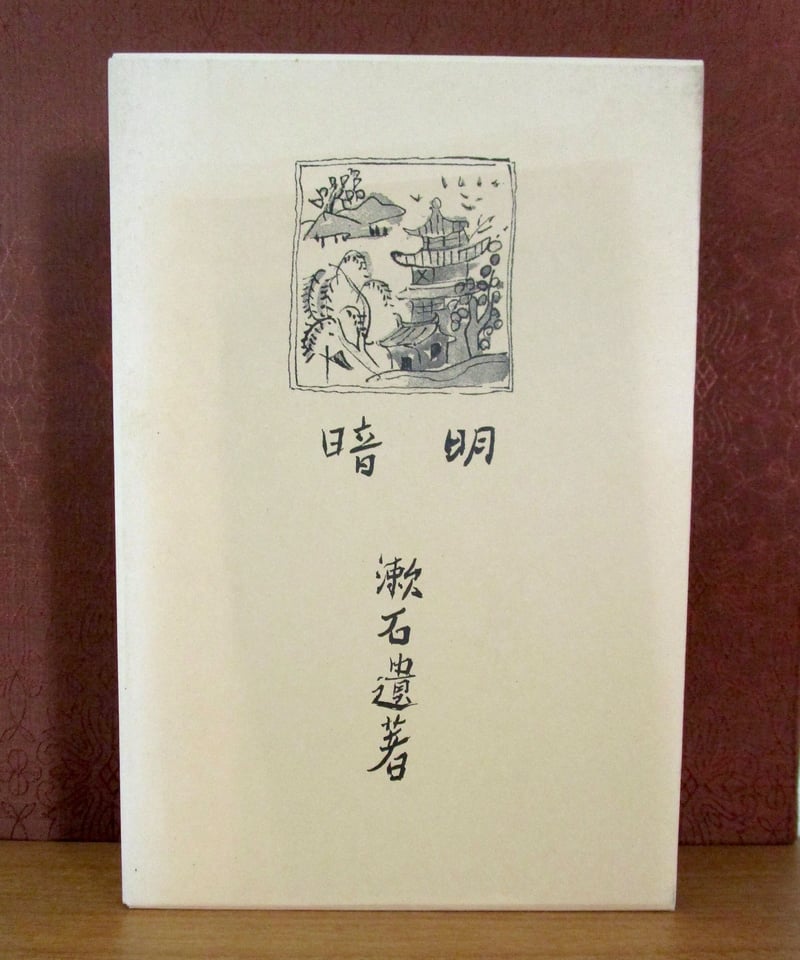 明暗
漱石遺著